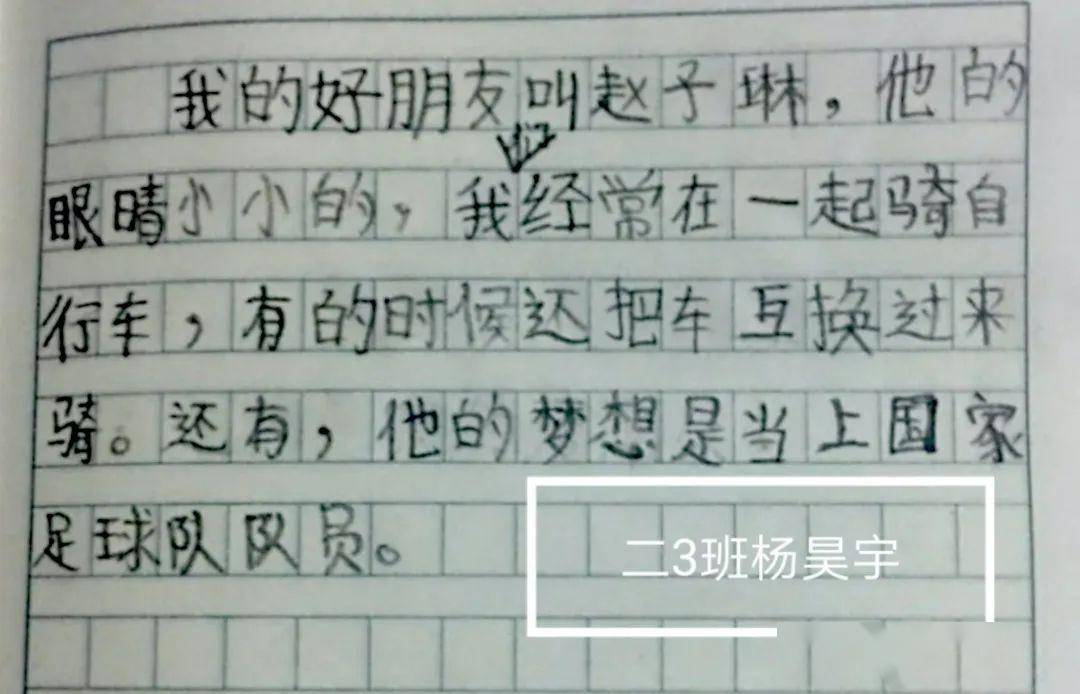 我的好朋友叫赵子琳，他的
们
眼睛小小的，我经常在一起骑自
行车，有的时候还把车互换过来
骑。还有，他的梦想是当上国家
足球队队员。
二3班杨昊宇